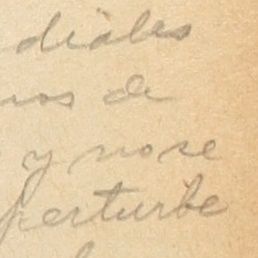 diales
nos de
y no se
perturbe